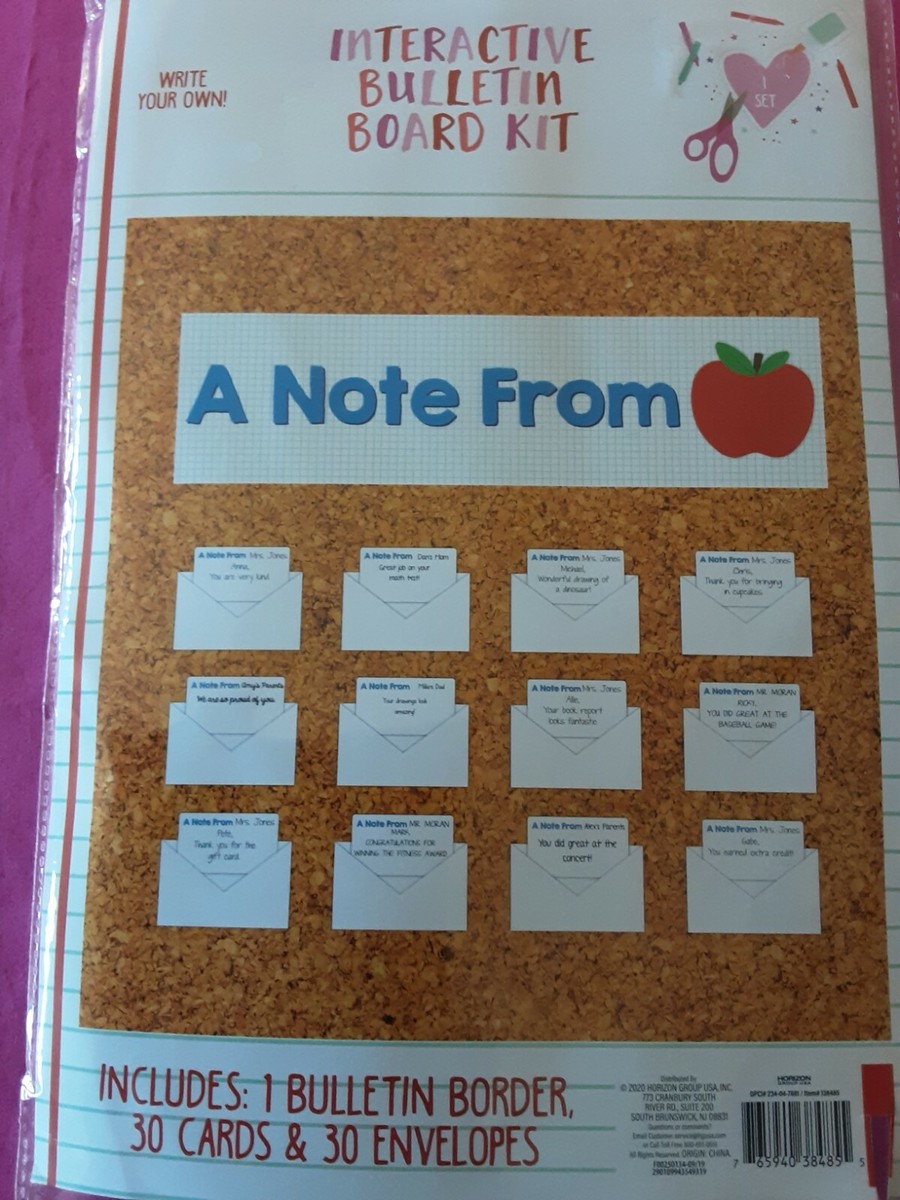 WRITE
YOUR OWN!
INTERACTIVE
BULLETIN
BOARD KIT
1
SET
A Note From
A Note From Mrs. Jones
Anna,
You are very kind.
A Note From
Great job on your
math test!
A Note From Mrs. Jones
Michael,
Wonderful drawing of
a dinosaur!
A Note From Mrs. Jones
Chris,
Thank you for bringing
in cupcakes.
A Note From Amy's Parents
We are so proud of you.
A Note From Dad
Your drawings look
amazing!
A Note From Mrs. Jones
Allie,
Your book report
looks fantastic
A Note From MR. MORAN
RICKY,
YOU DID GREAT AT THE
BASEBALL GAME!
A Note From Mrs. Jones
Pete,
Thank you for the
gift card.
A Note From MR. MORAN
MARK,
CONGRATULATIONS FOR
WINNING THE FITNESS AWARD
A Note From Alex's Parents
You did great at the
concert!
A Note From Mrs. Jones
Gabe,
You earned extra credit!
INCLUDES: 1 BULLETIN BORDER,
30 CARDS & 30 ENVELOPES
Distributed by
© 2020 HORIZON GROUP USA, INC.
773 CRANBURY SOUTH
RIVER RD., SUITE 200
SOUTH BRUNSWICK, NJ 08831
Questions or comments?
Email
or Call Toll Free
All Rights Reserved. ORIGIN: CHINA.
HORIZON
GROUP USA
7 65940 38485 5